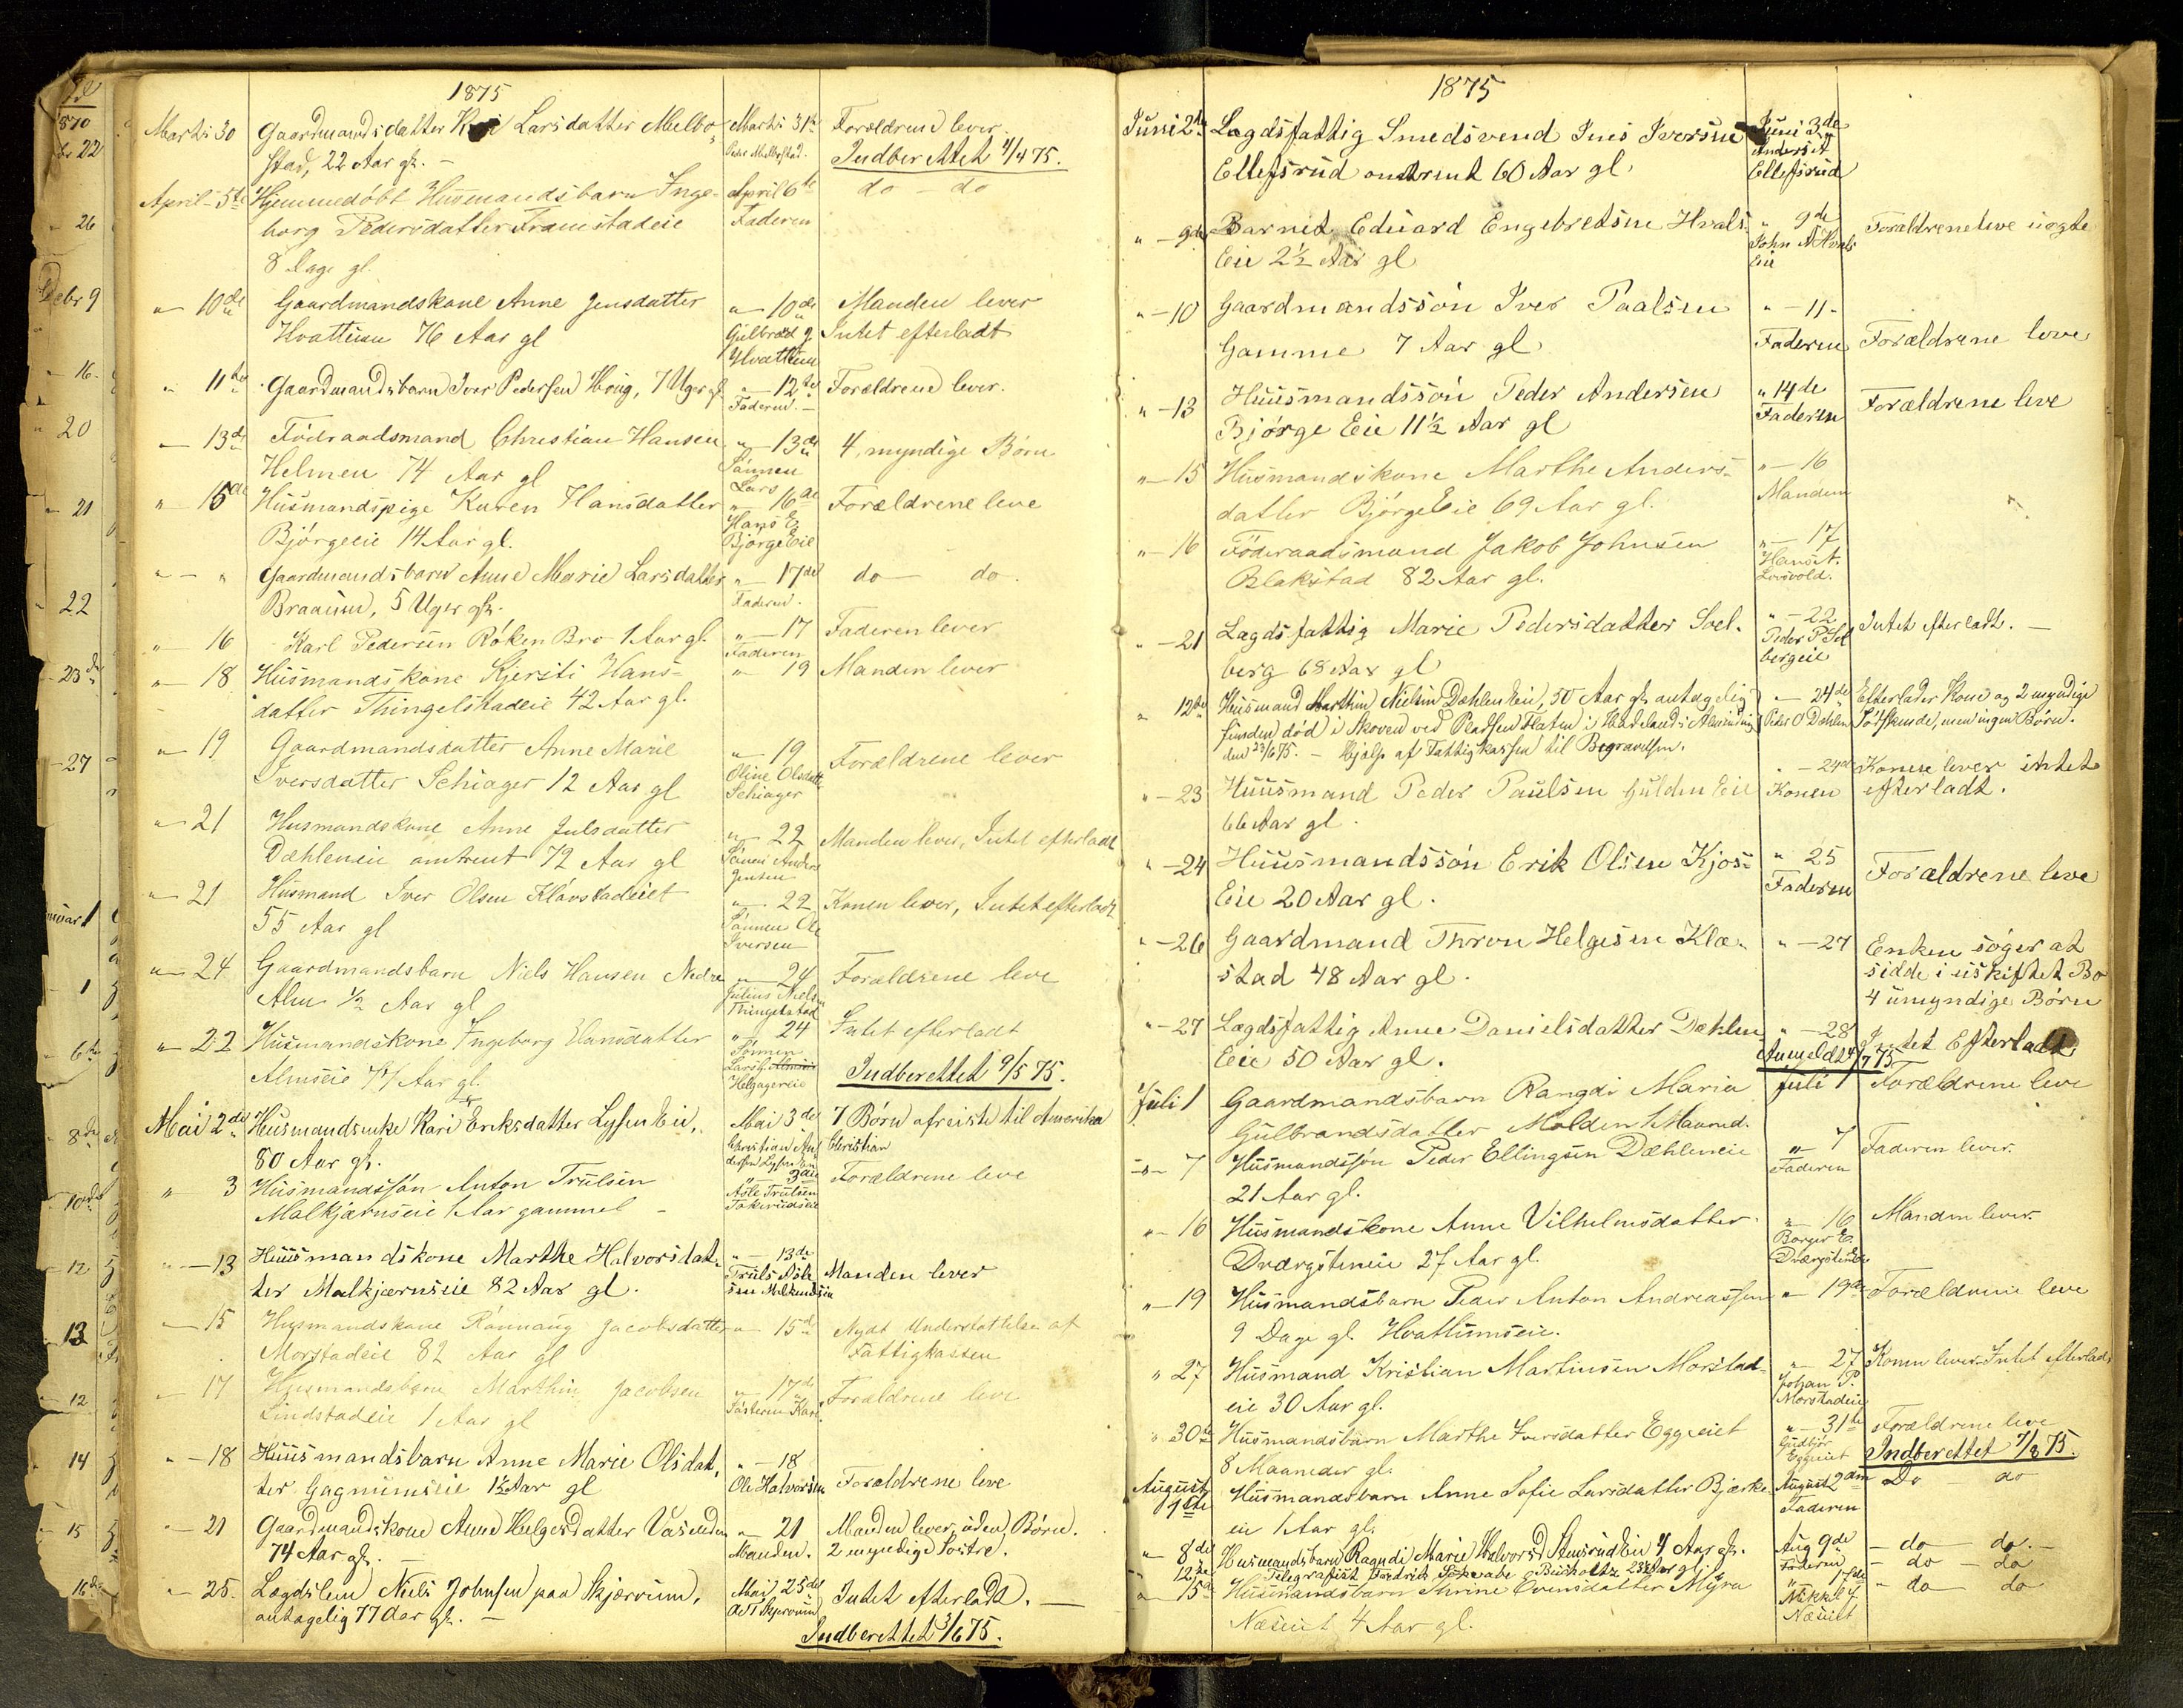 1875
Marts 30 Gaardmandsdatter Kari Larsdatter Melbo- Marts 31te Forældrene lever.
stad, 22 Aar gl. — Peder Melbostad. Indberettet 1/4 75.
April 5te Hjemmedøbt Husmandsbarn Inge- April 6te do — do
borg Pedersdatter Framstadeie Faderen
8 Dage gl.
" 10de Gaardmandskone Anne Jensdatter " 10de Manden lever
Hvattum 76 Aar gl Gulbrand J Intet efterladt
Hvattum
" 11te Gaardmandsbarn Iver Pedersen Houg, 7 Uger gl. " 12te Forældrene lever.
Faderen. —
— 13de Födraadsmand Christian Hansen " 13de 4 myndige Børn
Helmen 74 Aar gl Sønnen
Lars
" 15de Husmandspige Karen Hansdatter " 16de Forældrene leve
Bjørgeeie 14 Aar gl. Hans E.
Bjørge Eie
" — " Gaardmandsbarn Anne Marie Larsdatter " 17de do — do.
Braaum, 5 Uger gl. Faderen.
" — 16 Karl Pedersen Røken Bro 1 Aar gl. " — 17 Faderen lever
Faderen
" — 18 Husmandskone Kjersti Hans- " 19 Manden lever
datter Thingelstadeie 42 Aar gl.
" — 19 Gaardmandsdatter Anne Marie " 19 Forældrene lever
Iversdatter Schiager 12 Aar gl Oline Olsdatter
Schiager
" — 21 Husmandskone Anne Julsdatter " — 22 Manden lever, Intet efterladt
Dæhleneie omtrent 72 Aar gl Sønnen Anders
Jensen
" — 21 Husmand Iver Olsen Klæstadeiet " — 22 Konen lever, Intet efterladt
55 Aar gl Sønnen Ole
Iversen
" — 24 Gaardmandsbarn Niels Hansen Nedre " — 24 Forældrene leve
Alm 1/2 Aar gl Julius Nielsen
Thingelstad
" — 22 Husmandskone Ingeborg Hansdatter " 24 Intet efterladt
Almseie 77 Aar gl. Sønnen
Lars G. Almseie Indberettet 9/5 75.
Helgagereie
Mai 2de Husmandsenke Kari Eriksdatter Lysen Eie, Mai 3de 7 Børn afreiste til Amerika
80 Aar gl. Christian An- Christian
dersen Lysen Eie
" 3 Husmandssøn Anton Trulsen " 3de Forældrene leve
Malkjærnseie 1 Aar gammel — Asle Trulsen
Tokerudseie
" — 13 Huusmandskone Marthe Halvorsdat- " — 13de
ter Malkjærnseie 82 Aar gl. Truls Asle- Manden lever
sen Melkendseie
— 15 Husmandskone Rønnaug Jacobsdatter " 15de Nydt Understøttelse af
Morstadeie 82 Aar gl Fattigkassen
— 17 Husmandsbarn Marthin Jacobsen " — 17de Forældrene leve
Lindstadeie 1 Aar gl Søsteren Kari
" — 18 Huusmandsbarn Anne Marie Olsdat- " — 18
ter Gagnumseie 1½ Aar gl Ole Halvorsen Forældrene leve
" — 21 Gaardmandskone Anne Helgesdatter Vasenden " — 21 Manden lever, uden Børn.
74 Aar gl. — Manden. 2 myndige Søstre.
" — 25. Lægdslem Niels Johnsen paa Skjærvum, Mai 25de Intet efterladt. —
antagelig 77 Aar gl. — A T Skjervum
Indberettet 3/6 75.
1875
Juni 2de Lagdsfattig Smedsvend Jens Iversen Juni 3de
Ellefsrud omtrent 60 Aar gl. Anders A
Ellefsrud
" — 9de Barnet Eduard Engebretsen Hvals- " 9de Forældrene leve uægte
Eie 2½ Aar gl John A Hvals
Eie
" — 10 Gaardmandssøn Iver Paalsen " — 11 -
Gamme 7 Aar gl. Faderen Forældrene leve
" — 13 Huusmandssøn Peder Andersen " 14de
Bjørge Eie 11½ Aar gl Faderen Forældrene leve
" — 15 Husmandskone Marthe Anders- " — 16
datter Bjørge Eie 69 Aar gl. Manden
" — 16 Föderaadsmand Jakob Johnsen " — 17
Blakstad 82 Aar gl. Hans A.
" — 21 Lagdsfattig Marie Pedersdatter Soel- " — 22 Intet efterladt. —
berg 68 Aar gl Peder P Sol
bergeie
" 12te Husmand Marthin Nielsen Dæhlen Eie, 50 Aar gl. antagelig " — 24de Efterlader Kone og 2 myndige
funden død i Skoven ved Pladsen Flaten i Hadelands Almenning Peder O Dæhlen Sødskende, men ingen Børn.
den 23/6 75. — Hjælp af Fattigkassen til Begravelsen.
" — 23 Huusmand Peder Paulsen Gulden Eie " — 24de Konen lever intet
66 Aar gl. Konen efterladt.
" — 24 Huusmandssøn Erik Olsen Kjos- " 25
Eie 20 Aar gl. Faderen Forældrene leve
" — 26 Gaardmand Thron Helgesen Klæ- " — 27 Enken søger at
stad 48 Aar gl. sidde i uskiftet Bo
4 umyndige Børn
" — 27 Lægdsfattig Anne Danielsdatter Dæhlen " — 28 Intet Efterladt
Eie 50 Aar gl. Anmeldt 4/7 75
Juli 1 Gaardmandsbarn Rangdi Maria Juli 1 Forældrene leve
Gulbrandsdatter Molden 1 Maaned.
" — 7 Husmandssøn Peder Ellingsen Dæhleneie " 7 Faderen lever.
21 Aar gl. Faderen
" — 16 Husmandskone Anne Vilhelmsdatter " — 16 Manden lever.
Dværgsteneie 27 Aar gl. Borger E.
Dværgsten Eie
" — 19 Husmandsbarn Peder Anton Andreassen " — 19de Forældrene leve
9 Dage gl. Hvattumseie.
" 27 Husmand Kristian Martinsen Morstad- " 27 Konen lever. Intet efterladt
eie 30 Aar gl. Johan P.
Morstadeie
" 30te Husmandsbarn Marthe Iversdatter Eggeeiet " — 31te Forældrene leve
8 Maaneder gl. Gudbjør Indberettet 7/8 75.
Eggeeiet
August 1ste Husmandsbarn Anne Sofie Larsdatter Bjerke- August 2den Do — do
eie 1 Aar gl. Faderen
" — 8de Husmandsbarn Ragndi Marie Halvorsd Stensrud Eie 4 Aar gl. Aug 9de — do — do. —
" 12te Telegrafist Fredrik Buchholtz 23½ Aar gl. Faderen — do — do
" 15de Husmandsbarn Thrine Evensdatter Myra " 17de " do — do
Næseiet 4 Aar gl. Mikkel J
Næseiet